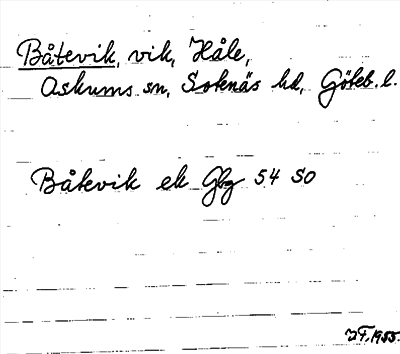 Båtevik, vik, Håle,
Askums sn, Sotenäs hd, Göteb. l.
Båtevik ek Gbg 54 SO
1955.